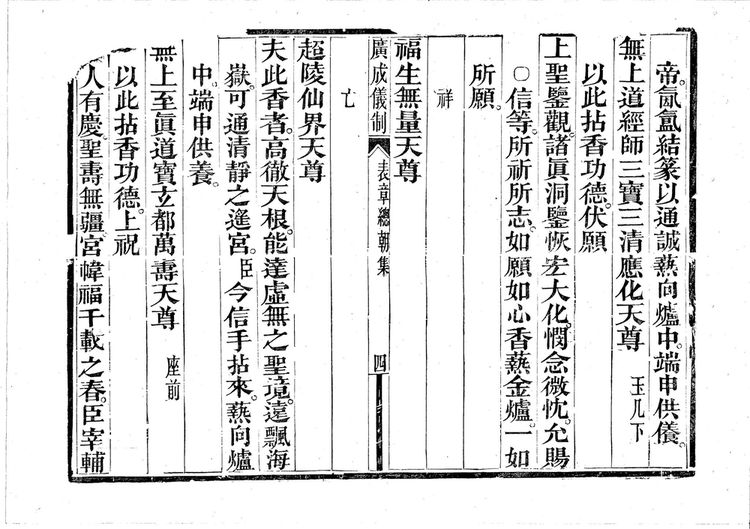 帝。氤氳結篆以通誠爇向爐中。端申供養。
無上道經師三寶三清應化天尊 玉几下
以此拈香功德。伏願
上聖鑒觀。諸眞洞鑒恢宏大化。憫念微忱。允賜
○信等。所祈所志。如願如心香爇金爐。一如
所願。
祥
福生無量天尊
廣成儀制 表章總朝集 四
亡
超陵仙界天尊
夫此香者。高徹天根。能達虛無之聖境。遠飄海
嶽。可通清靜之蓬宮。臣今信手拈來。爇向爐
中。端申供養。
無上至眞道寶立都萬壽天尊 座前
以此拈香功德。上祝
人有慶。聖壽無疆。宮幃福千載之春。臣宰輔